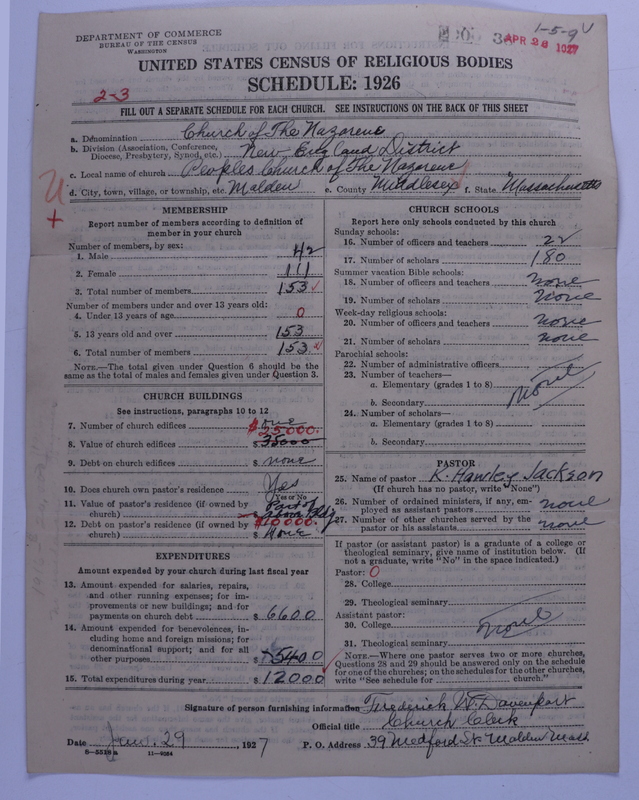 1-5-9 V
DEPARTMENT OF COMMERCE
BUREAU OF THE CENSUS
WASHINGTON
APR 28 1927
UNITED STATES CENSUS OF RELIGIOUS BODIES
SCHEDULE: 1926
2-3
FILL OUT A SEPARATE SCHEDULE FOR EACH CHURCH. SEE INSTRUCTIONS ON THE BACK OF THIS SHEET
a. Denomination Church of The Nazarene
b. Division (Association, Conference, Diocese, Presbytery, Synod, etc.) New England District
c. Local name of church Peoples Church of The Nazarene
d. City, town, village, or township, etc. Malden e. County Middlesex f. State Massachusetts
MEMBERSHIP
Report number of members according to definition of
member in your church
Number of members, by sex:
1. Male 42
2. Female 111
3. Total number of members 153
Number of members under and over 13 years old:
4. Under 13 years of age 0
5. 13 years old and over 153
6. Total number of members 153
NOTE.—The total given under Question 6 should be
same as the total of males and females given under Question 3.
CHURCH BUILDINGS
See instructions, paragraphs 10 to 12
7. Number of church edifices one
$25000.
8. Value of church edifices $35000
9. Debt on church edifices $ none
10. Does church own pastor's residence Yes
Yes or No
11. Value of pastor's residence (if owned by
church) $ Part of above Bldg
$10000.
12. Debt on pastor's residence (if owned by
church) $ None
EXPENDITURES
Amount expended by your church during last fiscal year
13. Amount expended for salaries, repairs,
and other running expenses; for im-
provements or new buildings; and for
payments on church debt $ 6600
14. Amount expended for benevolences, in-
cluding home and foreign missions; for
denominational support; and for all
other purposes $ 5400
15. Total expenditures during year $ 12000
CHURCH SCHOOLS
Report here only schools conducted by this church
Sunday schools:
16. Number of officers and teachers 22
17. Number of scholars 180
Summer vacation Bible schools:
18. Number of officers and teachers none
19. Number of scholars none
Week-day religious schools:
20. Number of officers and teachers none
21. Number of scholars none
Parochial schools:
22. Number of administrative officers
23. Number of teachers—
a. Elementary (grades 1 to 8) None
b. Secondary
24. Number of scholars—
a. Elementary (grades 1 to 8)
b. Secondary
PASTOR
25. Name of pastor K. Hawley Jackson
(If church has no pastor, write "None")
26. Number of ordained ministers, if any, em-
ployed as assistant pastors none
27. Number of other churches served by the
pastor or his assistants none
If pastor (or assistant pastor) is a graduate of a college or
theological seminary, give name of institution below. (If
not a graduate, write "No" in the space indicated.)
Pastor: 0
28. College
29. Theological seminary
Assistant pastor:
30. College None
31. Theological seminary
NOTE.—Where one pastor serves two or more churches,
Questions 28 and 29 should be answered only on the schedule
for one of the churches; on the schedules for the other churches,
write "See schedule for church."
Signature of person furnishing information Frederick W. Davenport
Official title Church Clerk
Date Jan. 29, 1927 P. O. Address 39 Medford St. Malden Mass
8-5519a 11-9054